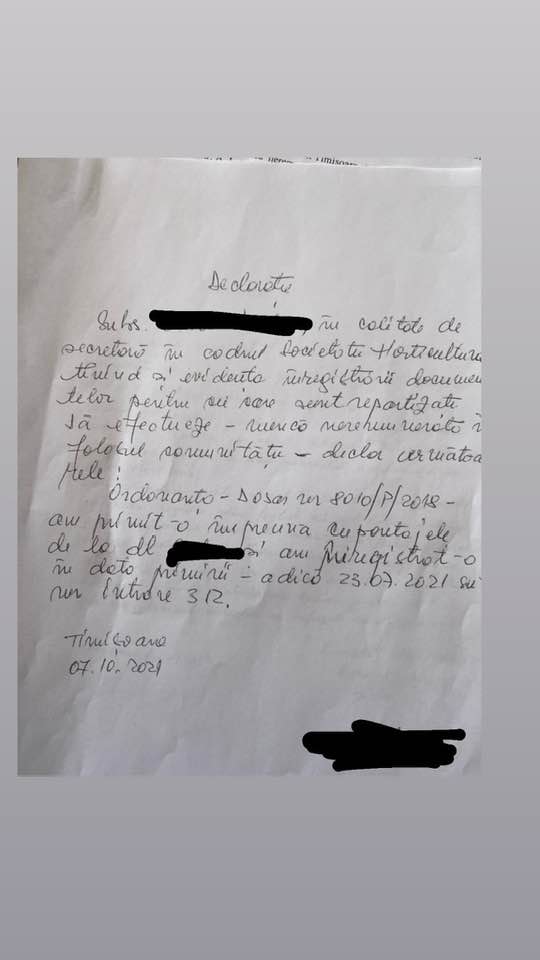 Declarație
Subs. în calitate de
secretară în cadrul Societății Horticultura
ținînd și evidența înregistrării documen
telor pentru cei care sunt repartizați
să efectueze - muncă neremunerată î
folosul comunității - declar următoa
rele:
Ordonanța - Dosar nr 8010/P/2018 -
am primit-o împreună cu pontajele
de la dl și am înregistrat-o
în data primirii - adică 23.07.2021 su
nr intrare 312.
Timișoara
07.10.2021